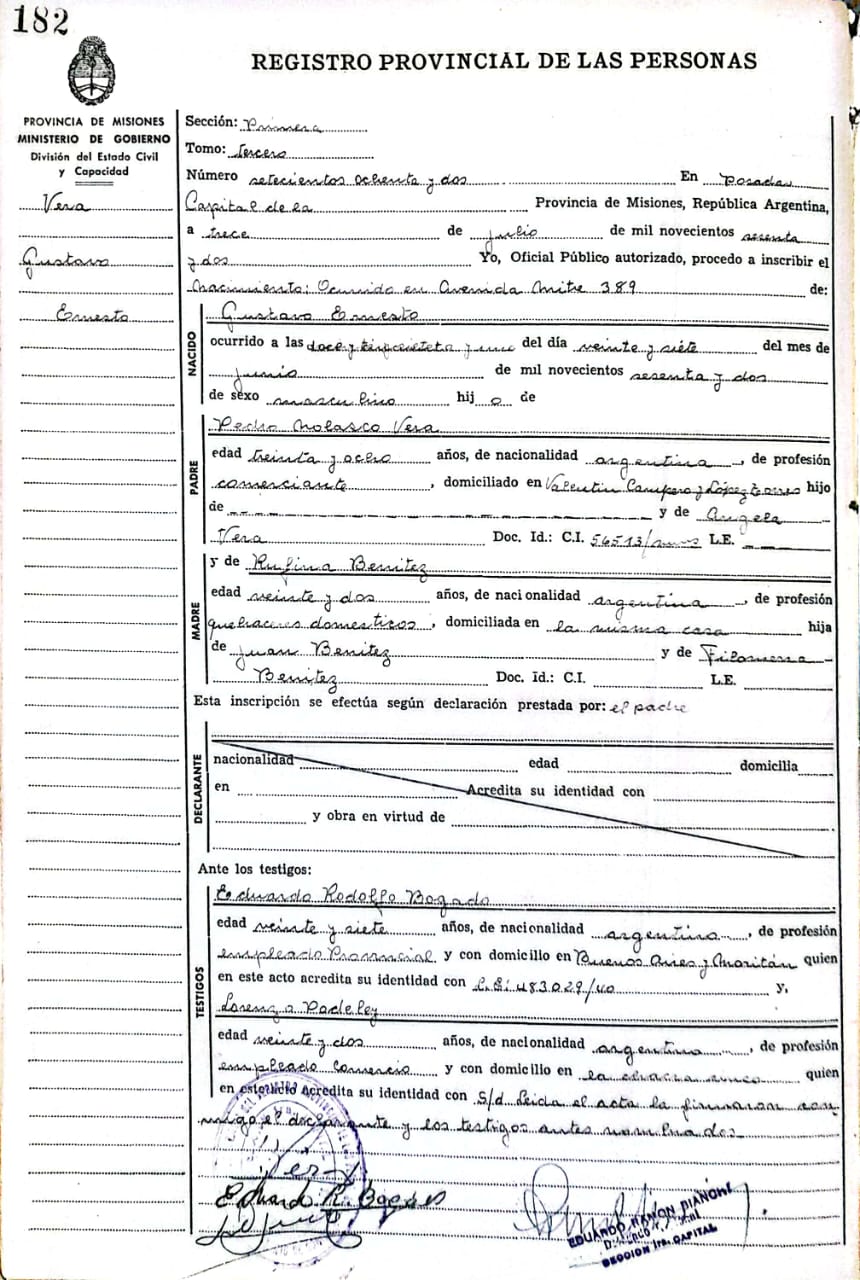 182
REGISTRO PROVINCIAL DE LAS PERSONAS
PROVINCIA DE MISIONES
MINISTERIO DE GOBIERNO
División del Estado Civil
y Capacidad
Vera
Gustavo
Ernesto
Sección: Primera
Tomo: tercero
Número setecientos ochenta y dos En Posadas
Capital de la Provincia de Misiones, República Argentina,
a trece de julio de mil novecientos sesenta
y dos Yo, Oficial Público autorizado, procedo a inscribir el
Nacimiento: Ocurrido en Avenida Mitre 389 de:
NACIDO
Gustavo Ernesto
ocurrido a las doce y y uno del día veinte y siete del mes de
junio de mil novecientos sesenta y dos
de sexo masculino hij o de
PADRE
Pedro Nolasco Vera
edad treinta y ocho años, de nacionalidad argentina, de profesión
comerciante, domiciliado en Valentin y López Torres hijo
de y de Angela
Vera Doc. Id.: C.I. 56513/ L.E.
MADRE
y de Rufina Benitez
edad veinte y dos años, de nacionalidad argentina, de profesión
quehaceres domesticos, domiciliada en la misma casa hija
de Juan Benitez y de Filomena
Benitez Doc. Id.: C.I. L.E.
Esta inscripción se efectúa según declaración prestada por: el padre
DECLARANTE
nacionalidad edad domicilia
en Acredita su identidad con
y obra en virtud de
Ante los testigos:
TESTIGOS
Eduardo Rodolfo Bogado
edad veinte y siete años, de nacionalidad argentina, de profesión
empleado Provincial y con domicilio en Buenos Aires y quien
en este acto acredita su identidad con 483029/40 y,
Lorenzo Padeley
edad veinte y dos años, de nacionalidad argentina, de profesión
empleado comercio y con domicilio en la chacra cinco quien
en este acto acredita su identidad con S/d. Leida el acta la firmaron con
migo el declarante y los testigos antes nombrados
Vera
Eduardo R. Bogado
EDUARDO RAMON BIANCHI
SECCION 1ra. CAPITAL